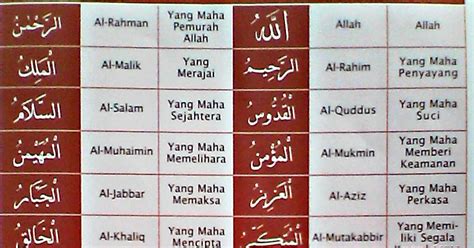 الرَّحْمٰنُ
Al-Rahman
Yang Maha
Pemurah
Allah
اَللّٰهُ
Allah
Allah
الْمَلِكُ
Al-Malik
Yang
Merajai
الرَّحِيمُ
Al-Rahim
Yang Maha
Penyayang
السَّلَامُ
Al-Salam
Yang Maha
Sejahtera
الْقُدُّوسُ
Al-Quddus
Yang Maha
Suci
الْمُهَيْمِنُ
Al-Muhaimin
Yang Maha
Memelihara
الْمُؤْمِنُ
Al-Mukmin
Yang Maha
Memberi
Keamanan
الْجَبَّارُ
Al-Jabbar
Yang Maha
Memaksa
الْعَزِيزُ
Al-Aziz
Yang Maha
Perkasa
الْخَالِقُ
Al-Khaliq
Yang Maha
Mencipta
الْمُتَكَبِّرُ
Al-Mutakabbir
Yang Memi-
liki Segala